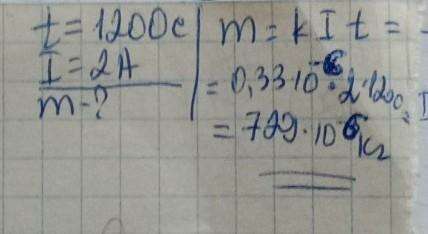 t = 1200с
I = 2A
m - ?
m = k I t =
= 0,33·10⁻⁶·2·1200=
= 729·10⁻⁶ кг